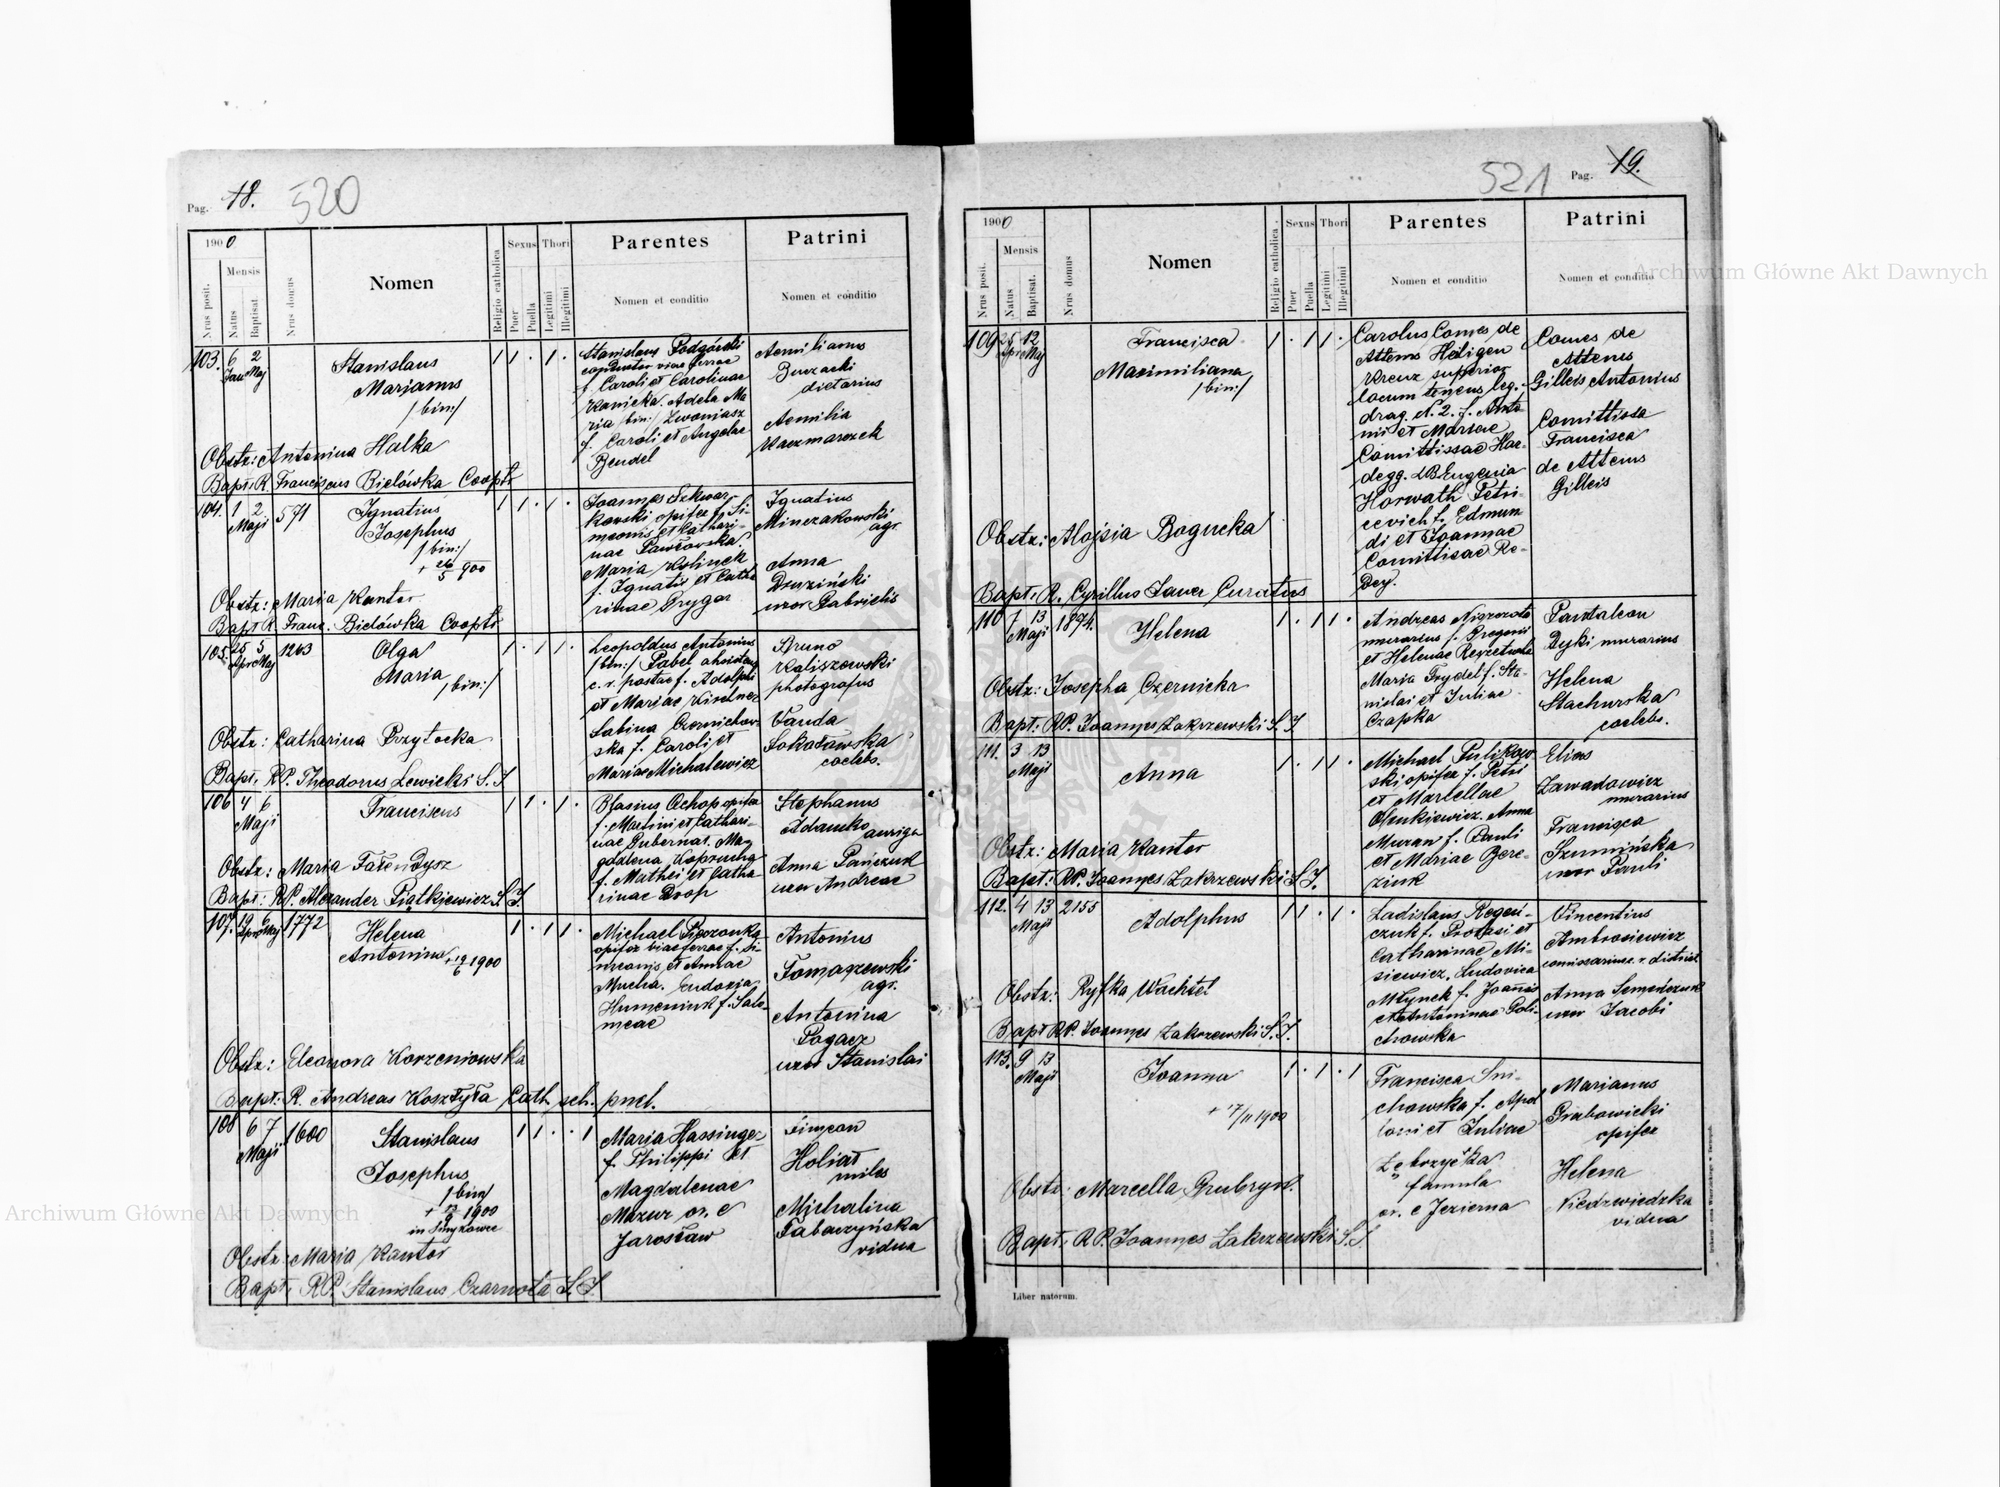 Pag. 18. 520
1900
Nrus posit.
Mensis
Natus
Baptisat.
Nrus domus
Nomen
Religio catholica
Sexus
Puer
Puella
Thori
Legitimi
Illegitimi
Parentes
Nomen et conditio
Patrini
Nomen et conditio
103. 6 Jan 2 Maj
Stanislaus
Marianus
/bin:/
1 1 · 1 ·
Stanislaus Podgórski
conductor viae ferrae
f. Caroli et Carolinae
Kanicka. Adela Ma
ria /bin:/ Zwoniasz
f. Caroli et Angelae
Bendel
Aemilianus
Buzacki
dietarius
Aemilia
Kaczmarczek
Obstr: Antonina Halka
Bapt: R. Franciscus Bielówka Coopr
104. 1 2 Maji 571
Ignatius
Josephus
/bin:/
+ 26/5 900
1 1 · 1 ·
Joannes Sekwar
kowski opifex f. Si
meonis et Cathari-
nae Pawłowska.
Maria Kolinek
f. Ignatii et Catha
rinae Grygor
Ignatius
Minczakowski
agr.
Anna
Druziński
uxor Gabrielis
Obstr: Maria Kantor
Bapt R. Franc. Bielówka Coopr
105. 25 Apr 5 Maj 1263
Olga
Maria
/bin:/
1 · 1 1 ·
Leopoldus Antonius
/bin:/ Pabel, assistens
c. r. postae f. Adolphi
et Mariae Kirchner
Sabina Czernichow
ska f. Caroli et
Mariae Michalewicz
Bruno
Kaliszewski
photografus
Vanda
Sokołowska
caelebs.
Obstr: Catharina Przytocka
Bapt: RP. Theodorus Lewicki S. J
106 4 6 Maji
Franciscus
1 1 · 1 ·
Blasius Ochop opifex
f. Martini et Cathari-
nae Gubernat. Mag
dalena Kopruchq
f. Mathei et Catha
rinae Droop
Stephanus
Adamko auriga
Anna Pańczuk
uxor Andreae
Obstr: Maria Talendysz
Bapt: RP. Alexander Piątkiewicz S. J.
107. 19 Apr 6 Maj 1772
Helena
Antonina + 19/6 1900
1 · 1 1 ·
Michael Pyrożonka
opifex viae ferrae f. Si-
meonis et Annae
Mucha. Eudoxia
Humeniuk f. Salo-
meae
Antonius
Tomaszewski
agr.
Antonina
Pogacz
uxor Stanislai
Obstr: Eleonora Korzeniowska
Bapt: R. Andreas Kosztyła Cath. sch. puel.
108 6 7 Maji 1600
Stanislaus
Josephus
/bin/
1900
1 1 · · 1
Maria Hassinger
f. Philippi et
Magdalenae
Mazur or. e
Jarosław
Simeon
Holiat
miles
Michalina
Tabaczyńska
vidua
Obstr: Maria Kantor
Bapt: RP. Stanislaus Czarnota S. J.
521 Pag. 19.
1900
Nrus posit.
Mensis
Natus
Baptisat.
Nrus domus
Nomen
Religio catholica
Sexus
Puer
Puella
Thori
Legitimi
Illegitimi
Parentes
Nomen et conditio
Patrini
Nomen et conditio
109 25 Apr 12 Maj
Francisca
Maximiliana
/bin:/
1 · 1 1 ·
Carolus Comes de
Attems Heiligen
Kreuz superior
locum tenens leg.
drag. N. 2. f. Anto
nii et Mariae
Comittissae Har-
degg. LB. Eugenia
Horwath Petri-
cevich f. Edmun
di et Joannae
Comittisae Re-
Dey.
Comes de
Attems
Gilleis Antonius
Comittissa
Francisca
de Attems
Gilleis
Obstr: Alojsia Bogucka
Bapt: R. Cyrillus Sauer Curatus
110 7 13 Maji 1894.
Helena
1 · 1 1 ·
murarius f. Gregorii
et Helenae
Maria Frydel f. Sta-
nislai et Juliae
Czapka
Pantaleon
Dyki murarius
Helena
Stachurska
caelebs.
Obstr: Josepha Czernicka
Bapt: RP. Joannes Zakrzewski S. J.
111. 3 13 Maji
Anna
1 · 1 1 ·
Michael Pulikow
ski opifex f. Petri
et Marcellae
Olenkiewicz. Anna
Muran f. Pauli
et Mariae Bere-
ziuk
Elias
Zawadowicz
murarius
Francisca
Szumińska
uxor Pauli
Obstr: Maria Kantor
Bapt: RP. Joannes Zakrzewski S J.
112. 4 13 Maji 2155
Adolphus
1 1 · 1 ·
Ladislaus Rogeń-
czuk f. Protasi et
Catharinae Mi-
siewicz. Ludovica
Młynek f. Joannis
et Antoninae Goli-
chowska
Vincentius
Ambrosiewicz
Anna Semeńczuk
uxor Jacobi
Obstr: Ryfka Wachtel
Bapt RP. Joannes Zakrzewski S. J.
113. 9 13 Maji
Joanna
+ 17/11 1900
1 · 1 · 1
Francisca Sni-
chowska f. Apol
loni et Juliae
Zebrzycka
famula
or. e Jezierna
Marianus
Grabowiecki
opifex
Helena
Niedzwiedzka
vidua
Obstr: Marcella Grubryn.
Bapt: RP. Joannes Zakrzewski S. J.
Liber natorum.
Archiwum Główne Akt Dawnych
Archiwum Główne Akt Dawnych